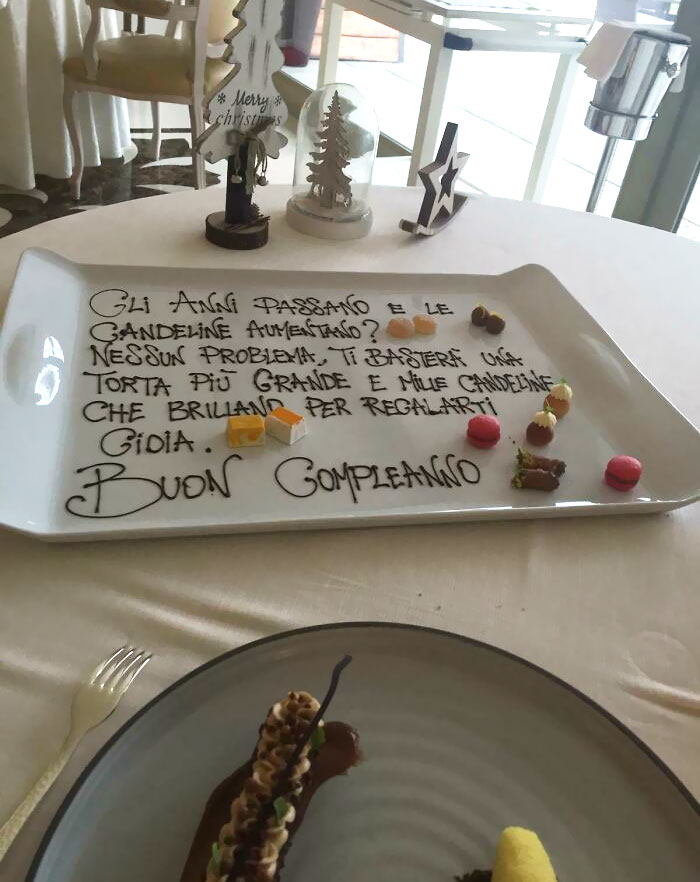 Merry
christmas
GLI ANNI PASSANO E LE
CANDELINE AUMENTANO?
NESSUN PROBLEMA, TI BASTERÀ UNA
TORTA PIÙ GRANDE E MILLE CANDELINE
CHE BRILLANO PER REGALARTI
GIOIA.
BUON COMPLEANNO